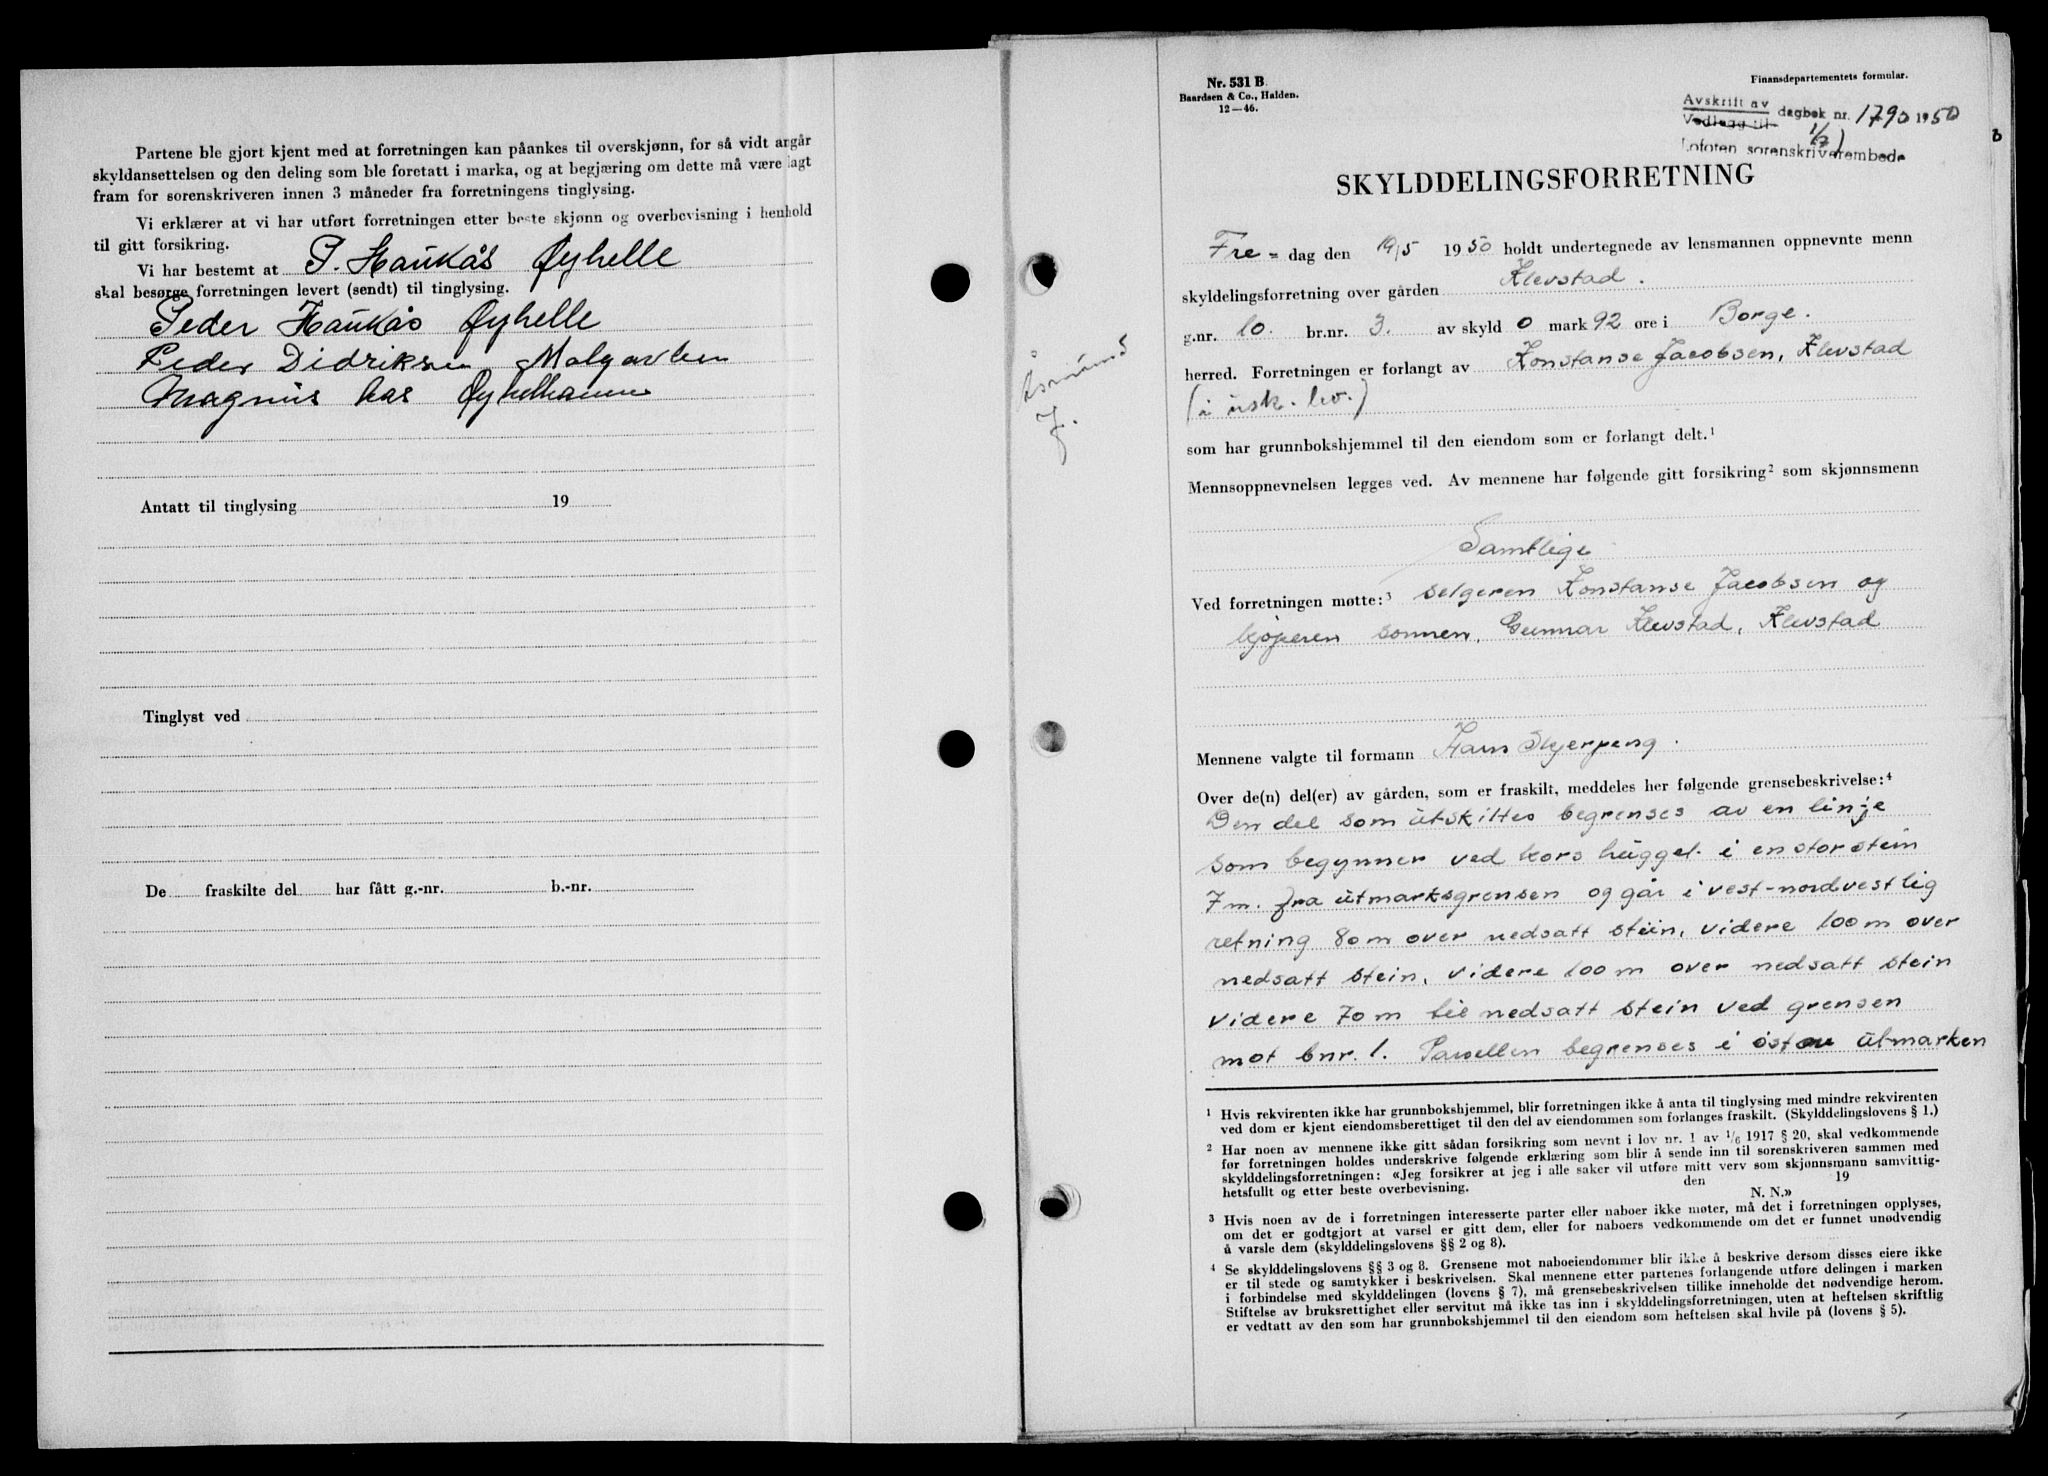 Partene ble gjort kjent med at forretningen kan påankes til overskjønn, for så vidt angår
skyldansettelsen og den deling som ble foretatt i marka, og at begjæring om dette må være lagt
fram for sorenskriveren innen 3 måneder fra forretningens tinglysing.
Vi erklærer at vi har utført forretningen etter beste skjønn og overbevisning i henhold
til gitt forsikring.
Vi har bestemt at P. Haukås Øyhelle
skal besørge forretningen levert (sendt) til tinglysing.
Peder Haukås Øyhelle
Peder Didriksen
Magnus
Antatt til tinglysing 19
Tinglyst ved
De fraskilte del har fått g.-nr. b.-nr.
Nr. 531 B.
Baardsen & Co., Halden.
12—46.
Finansdepartementets formular.
Avskrift av
Vedlegg til dagbok nr. 1790 1950
Lofoten sorenskriverembede
SKYLDDELINGSFORRETNING
Fre = dag den 19/5 1950 holdt undertegnede av lensmannen oppnevnte menn
skyldelingsforretning over gården Klevstad.
g.nr. 10. br.nr. 3. av skyld 0 mark 92 øre i Borge.
herred. Forretningen er forlangt av Konstanse Jacobsen, Klevstad
(i usk. bo.)
som har grunnbokshjemmel til den eiendom som er forlangt delt.¹
Mennsoppnevnelsen legges ved. Av mennene har følgende gitt forsikring² som skjønnsmenn
Samtlige
Ved forretningen møtte:³ selgeren Konstanse Jacobsen og
kjøperen sønnen, Gunnar Klevstad, Klevstad
Mennene valgte til formann Hans Skjerpeng.
Over de(n) del(er) av gården, som er fraskilt, meddeles her følgende grensebeskrivelse:⁴
Den del som utskiltes begrenses av en linje
som begynner ved kors hugget i en stor stein
7 m. fra utmarksgrensen og går i vest-nordvestlig
retning 80 m over nedsatt stein, videre 100 m over
nedsatt stein, videre 100 m over nedsatt stein
videre 70 m til nedsatt stein ved grensen
mot bnr. 1. Parsellen begrenses i øst av utmarken
¹ Hvis rekvirenten ikke har grunnbokshjemmel, blir forretningen ikke å anta til tinglysing med mindre rekvirenten
ved dom er kjent eiendomsberettiget til den del av eiendommen som forlanges fraskilt. (Skylddelingslovens § 1.)
² Har noen av mennene ikke gitt sådan forsikring som nevnt i lov nr. 1 av 1/6 1917 § 20, skal vedkommende
før forretningen holdes underskrive følgende erklæring som blir å sende inn til sorenskriveren sammen med
skylddelingsforretningen: «Jeg forsikrer at jeg i alle saker vil utføre mitt verv som skjønnsmann samvittig-
hetsfullt og etter beste overbevisning. den 19
N. N.»
³ Hvis noen av de i forretningen interesserte parter eller naboer ikke møter, må det i forretningen opplyses,
om det er godtgjort at varsel er gitt dem, eller for naboers vedkommende om det er funnet unødvendig
å varsle dem (skylddelingslovens §§ 2 og 8).
⁴ Se skylddelingslovens §§ 3 og 8. Grensene mot naboeiendommer blir ikke å beskrive dersom disses eiere ikke
er til stede og samtykker i beskrivelsen. Skal mennene etter partenes forlangende utføre delingen i marken
i forbindelse med skylddelingen (lovens § 7), må grensebeskrivelsen tillike inneholde det nødvendige herom.
Stiftelse av bruksrettighet eller servitut må ikke tas inn i skylddelingsforretningen, uten at heftelsen skriftlig
er vedtatt av den som har grunnbokshjemmel til den eiendom som heftelsen skal hvile på (lovens § 5).